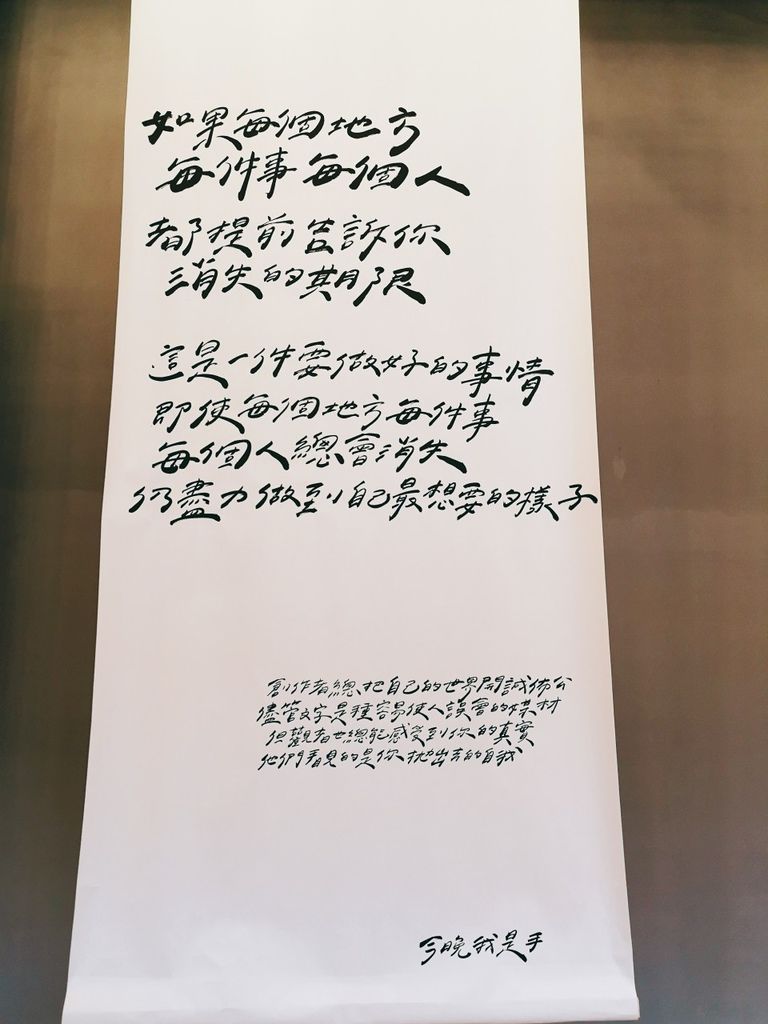 如果每個地方
每件事每個人
都提前告訴你
消失的期限
這是一件要做好的事情
即使每個地方每件事
每個人總會消失
仍盡力做到自己最想要的樣子
創作者總把自己的世界開誠佈公
儘管文字是種容易使人誤會的媒材
但觀者也總能感受到你的真實
他們看見的是你拋出去的自我
今晚我是手